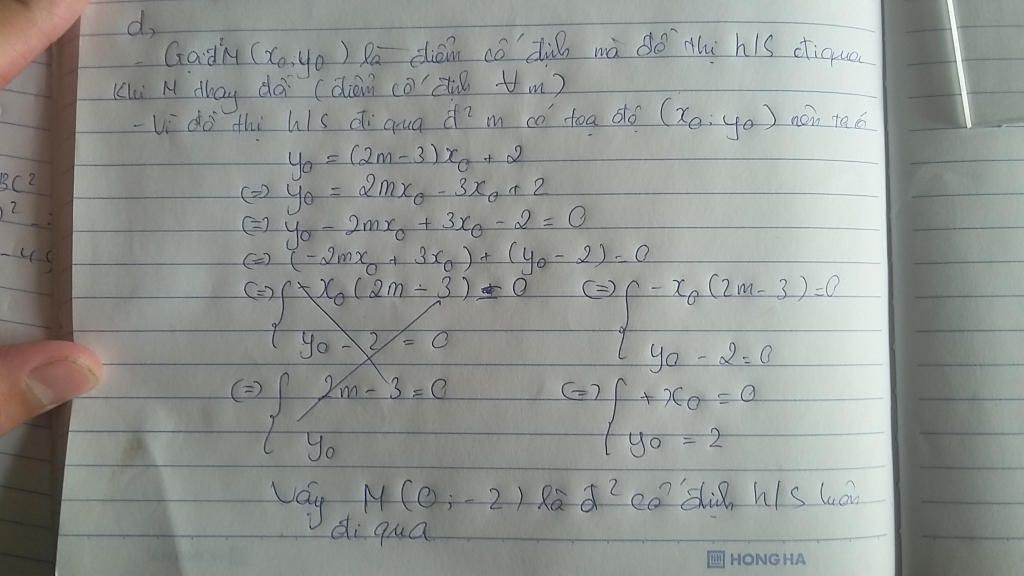 d,
- Gọi đ² M (x₀; y₀) là điểm cố định mà đồ thị h/s đi qua
Khi M thay đổi (điểm cố định ∀ m)
- Vì đồ thị h/s đi qua đ² m có toạ độ (x₀; y₀) nên ta có
y₀ = (2m - 3)x₀ + 2
(=) y₀ = 2mx₀ - 3x₀ + 2
(=) y₀ - 2mx₀ + 3x₀ - 2 = 0
(=) (-2mx₀ + 3x₀) + (y₀ - 2) = 0
(=) { - x₀ (2m - 3) = 0 (=) { - x₀ (2m - 3) = 0
y₀ - 2 = 0 y₀ - 2 = 0
(=) { 2m - 3 = 0 (=) { + x₀ = 0
y₀ y₀ = 2
Vậy M (0; -2) là đ² cố định h/s luôn
đi qua
HONG HA